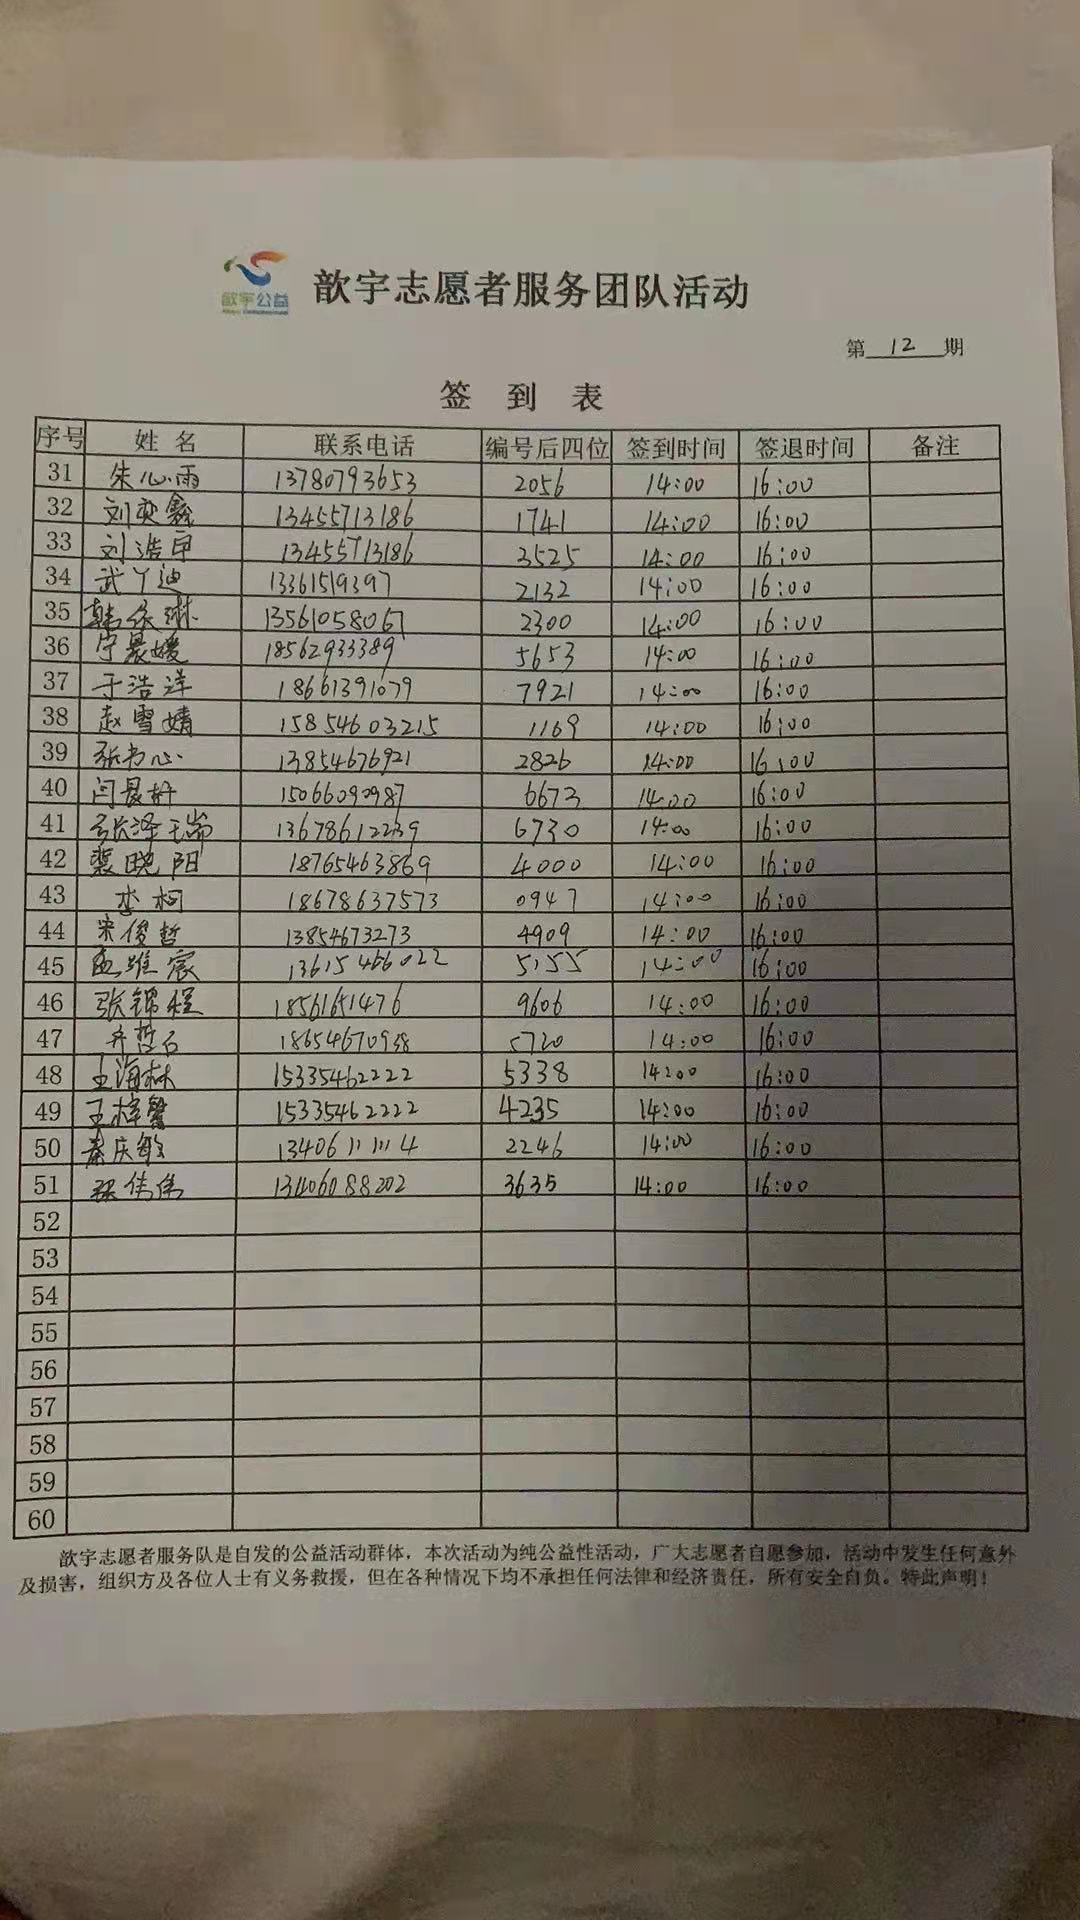 歆宇公益
歆宇志愿者服务团队活动
第 12 期
签 到 表
序号 姓 名 联系电话 编号后四位 签到时间 签退时间 备注
31 朱心雨 13780793653 2056 14:00 16:00
32 刘奕鑫 13455713186 1741 14:00 16:00
33 刘浩宇 13455713186 3525 14:00 16:00
34 武丫迪 13361519397 2132 14:00 16:00
35 韩依琳 13561058067 2300 14:00 16:00
36 宁晨媛 18562933389 5653 14:00 16:00
37 于浩洋 18661391079 7921 14:00 16:00
38 赵雪婧 15854603215 1169 14:00 16:00
39 张书心 13854676921 2826 14:00 16:00
40 闫晨轩 15066092987 6673 14:00 16:00
41 张泽瑞 13678612239 6730 14:00 16:00
42 裴晓阳 18765463869 4000 14:00 16:00
43 李柯 18678637573 0947 14:00 16:00
44 宋俊哲 13854673273 4909 14:00 16:00
45 孟维宸 13615466022 5155 14:00 16:00
46 张锦程 18561651476 9606 14:00 16:00
47 5720 14:00 16:00
48 王海林 15335462222 5338 14:00 16:00
49 王梓馨 15335462222 4235 14:00 16:00
50 秦庆敏 13406111114 2246 14:00 16:00
51 张伟伟 13406088202 3635 14:00 16:00
52
53
54
55
56
57
58
59
60
歆宇志愿者服务队是自发的公益活动群体，本次活动为纯公益性活动，广大志愿者自愿参加，活动中发生任何意外
及损害，组织方及各位人士有义务救援，但在各种情况下均不承担任何法律和经济责任，所有安全自负。特此声明！